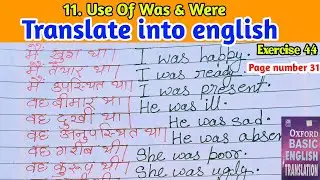 11. Use Of Was & Were
Translate into english
Exercise 44
Page number 31
मैं खुश था। I was happy.
मैं तैयार था। I was ready.
मैं उपस्थित था। I was present.
वह बीमार था। He was ill.
वह दुखी था। He was sad.
वह अनुपस्थित था। He was absen
वह गरीब थी। She was poor.
वह कुरूप थी। She was ugly.
OXFORD
BASIC
ENGLISH
TRANSLATION